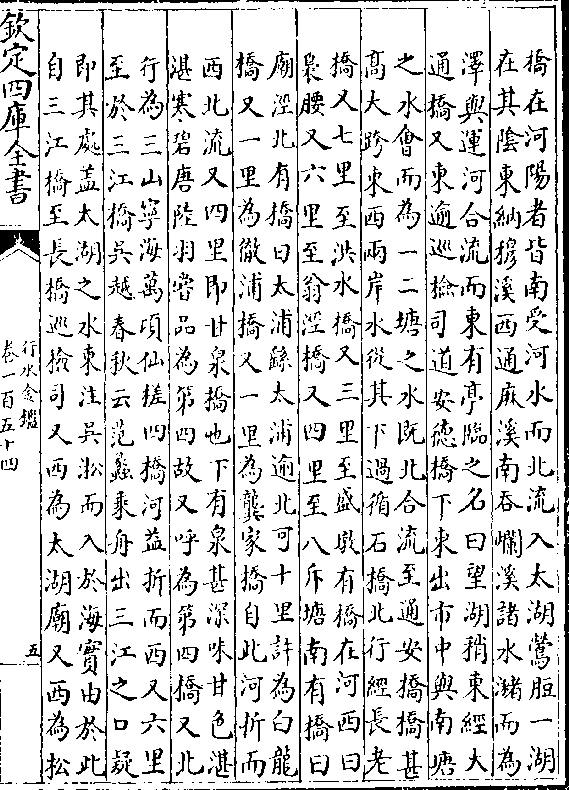 橋在河陽者皆南受河水而北流入太湖鶯脰一湖
在其陰東納穆溪西通麻溪南吞爛溪諸水瀦而為
澤與運河合流而東有亭臨之名曰望湖稍東經大
通橋又東逾巡檢司道安德橋下東出市中與南塘
之水會而為一二塘之水既北合流至通安橋橋甚
髙大跨東西兩岸水從其下過循石橋北行經長老
橋又七里至洪水橋又三里至盛墩有橋在河西曰
裊腰又六里至翁涇橋又四里至八斥塘南有橋曰
廟涇北有橋曰太浦繇太浦逾北可十里許為白龍
橋又一里為徹浦橋又一里為龔家橋自此河折而
西北流又四里即甘泉橋也下有泉甚深味甘色湛
湛寒碧唐陸羽嘗品為第四故又呼為第四橋又北
行為三山寧海萬頃仙槎四橋河益折而西又六里
至於三江橋吳越春秋云范蠡乘舟出三江之口疑
即其處盖太湖之水東注吳淞而入於海實由於此
自三江橋至長橋巡檢司又西為太湖廟又西為松
欽定四庫全書
行水金鑑
卷一百五十四
五